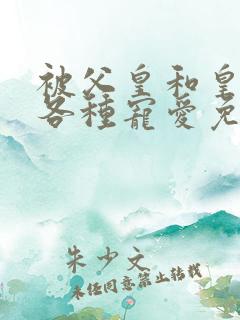 被父皇和皇
各種寵愛免
朱少文
未任同意禁止转载